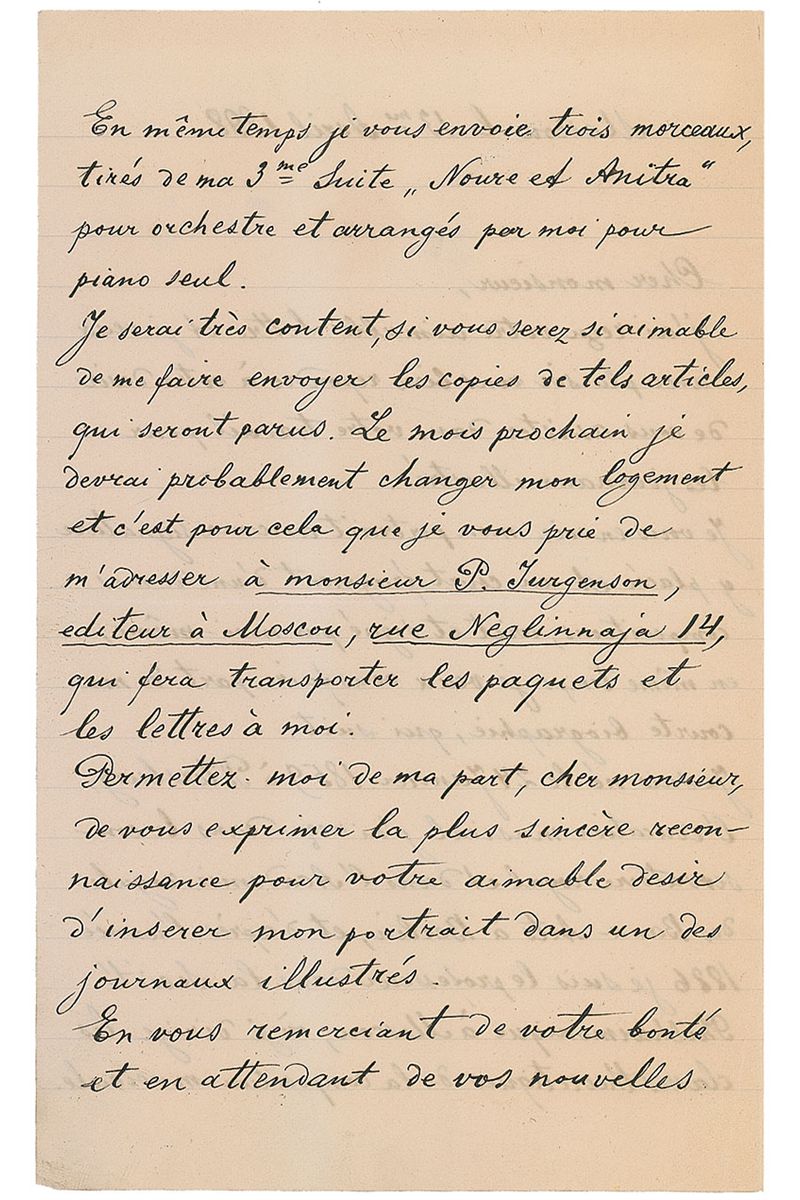 En même temps je vous envoie trois morceaux,
tirés de ma 3me Suite „Noure et Anitra“
pour orchestre et arrangés par moi pour
piano seul.
Je serai très content, si vous serez si aimable
de me faire envoyer les copies de tels articles,
qui seront parus. Le mois prochain je
devrai probablement changer mon logement
et c'est pour cela que je vous prie de
m'adresser à monsieur P. Jurgenson,
editeur à Moscou, rue Neglinnaja 14,
qui fera transporter les paquets et
les lettres à moi.
Permettez-moi de ma part, cher monsieur,
de vous exprimer la plus sincère recon-
naissance pour votre aimable desir
d'inserer mon portrait dans un des
journaux illustrés.
En vous remerciant de votre bonté
et en attendant de vos nouvelles